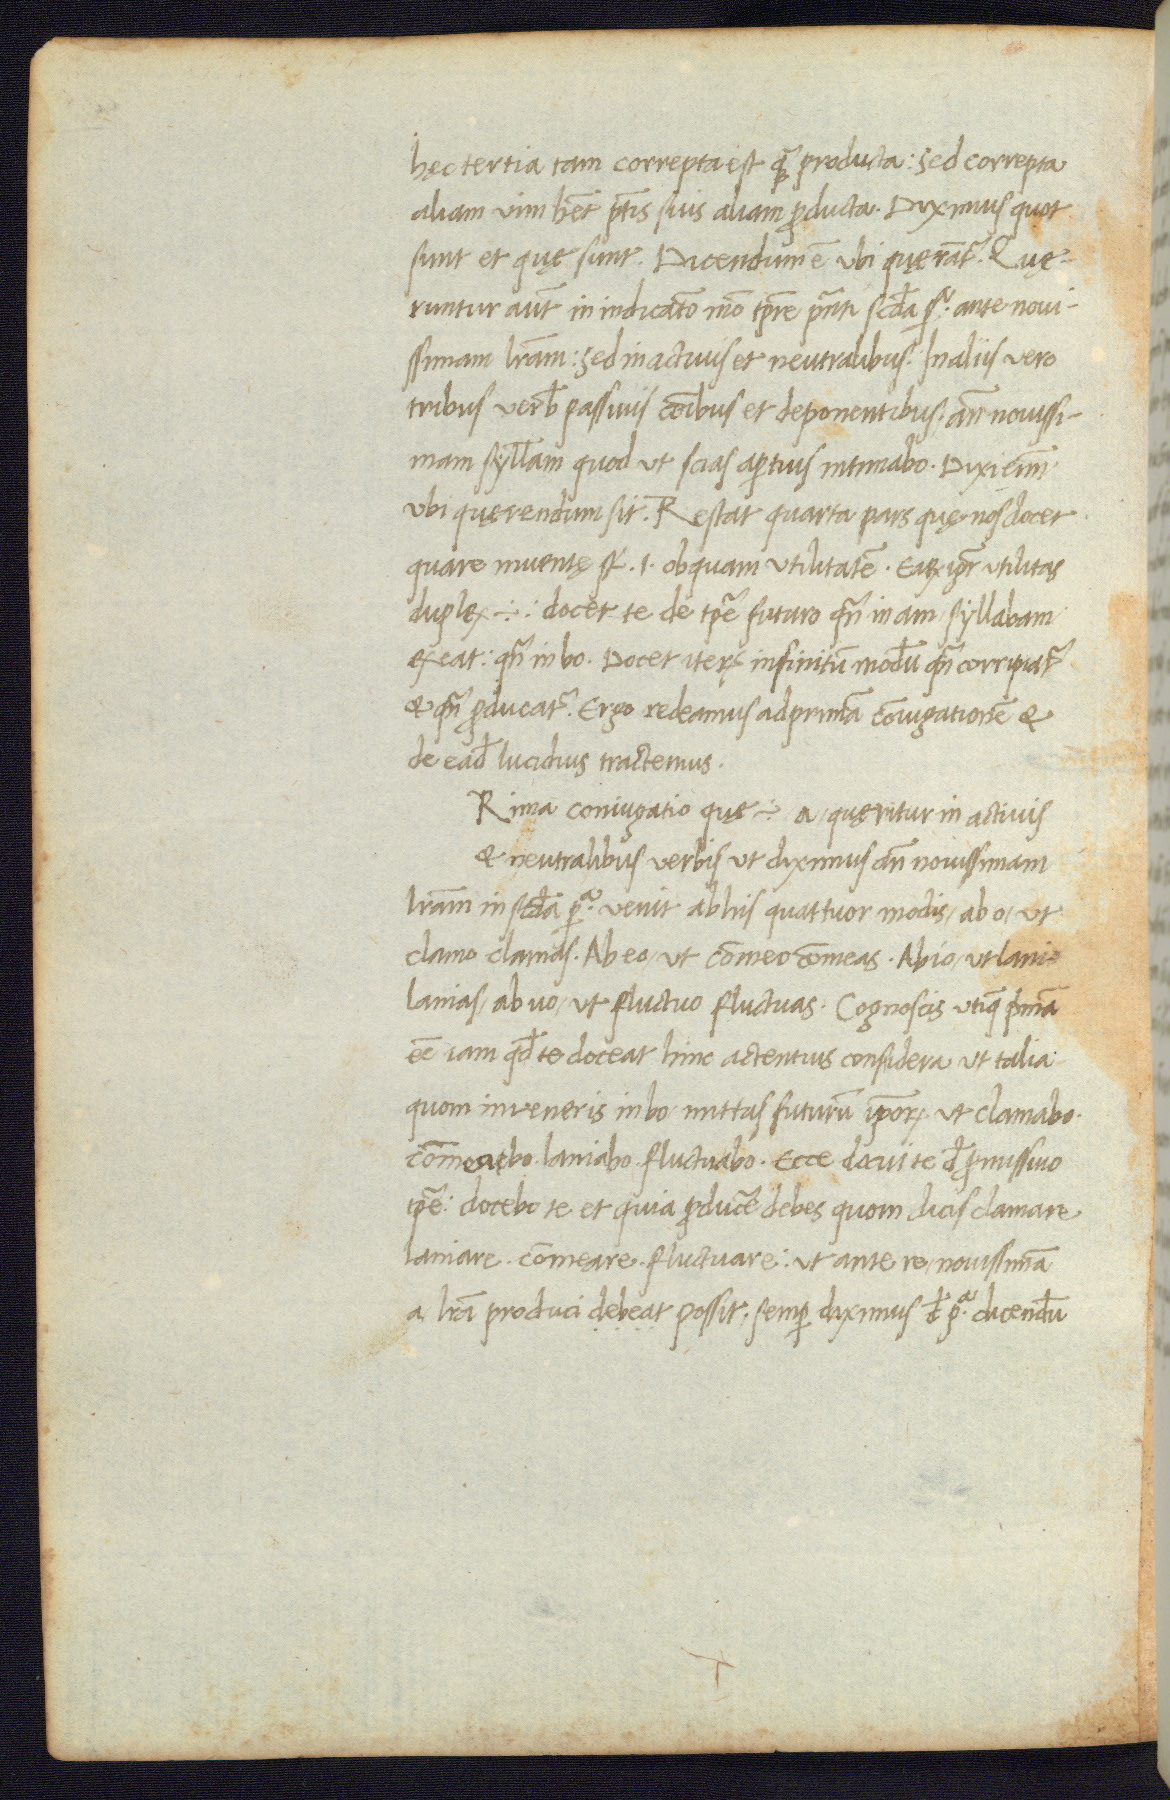 hęc tertia tam correpta est q̃ producta: Sed correpta
aliam uim hẽt p̃tis suis aliam ꝓducta. Diximus quot
sunt et quę sunt. Dicendum ẽ ubi quęrãt᷑. Quę-
runtur aut̃ in indicat̃o mõ tp̃re p̃nti scd̃a p̱ᵃ. ante noui-
ssimam lr̃am: Sed in actiuis et neutralibus. In aliis uero
tribus uerb̃ passiuis cõibus et deponentibus. añ nouissi-
mam syll̃am quod ut scias aꝑtius intimabo. Dixi eim̃
ubi quęrendum sit. Restat quarta pars quę nos docet
quare inuentę st̃. i. ob quam utilitatẽ. Eaꝝ igr̃ utilitas
duplex ÷: docet te de tp̃e futuro qñ in am syllabam
exeat: qñ in bo. Docet iteꝝ infinitũ modũ qñ corripiat᷑
& qñ ꝓducat᷑. Ergo redeamus ad primã cõiugationẽ &
de ead̃ lucidius tractemus.
Rima coniugatio quę ÷ a quęritur in actiuis
& neutralibus uerbis ut diximus añ nouissimam
lr̃am in scd̃a p̱ᵃ. uenit ab his quattuor modis, ab o, ut
clamo clamas. Ab eo, ut cõmeo cõmeas. Ab io, ut lanio
lanias, ab uo, ut fluctuo fluctuas. Cognoscis utiq̃ primã
eẽ iam qd̃ te doceat hinc actentius considera ut talia
quom inueneris in bo mittas futurũ ip̃oꝝ ut clamabo.
cõmeabo laniabo. fluctuabo. Ecce docui te d̃ ꝓmissiuo
tp̃e: docebo te et quia ꝓducẽ debes quom dicis clamare
laniare. cõmeare. fluctuare: ut ante re, nouissimã
a lr̃a produci debeat possit, semꝑ diximus d̃ p̱ᵃ. dicendũ